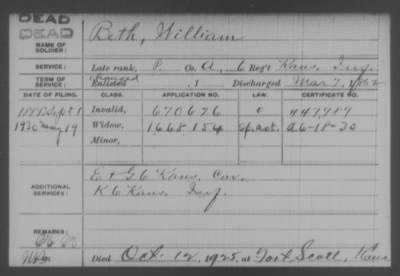 DEAD
DEAD
NAME OF SOLDIER: Beth, William
SERVICE: Late rank, P. Co. A, 6 Reg't Kans. Inf.
TERM OF SERVICE: Enlisted , 1 Discharged Mar 7, 1862
DATE OF FILING. CLASS. APPLICATION NO. LAW. CERTIFICATE NO.
1888 Sept 1 Invalid, 670626 0 447,989
1930 May 19 Widow, 1668154 Sp. act. A 6-18-30
Minor,
ADDITIONAL SERVICES: E & G 6 Kans. Cav.
K 6 Kans. Inf.
REMARKS:
Died Oct. 12, 1925, at Fort Scott, Kans